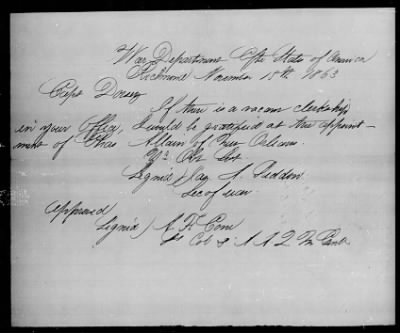 War Department Cfte States of America
Richmond November 18th 1863
Capt Dorsey
If there is a vacant clerkship
in your Office, I would be gratified at the appoint-
ment of Chas Allain of New Orleans.
Yr Obt Svt
Signed) Jas A. Seddon
Sec of war
Approved
Signed) A H
Lt Col & A A Q M